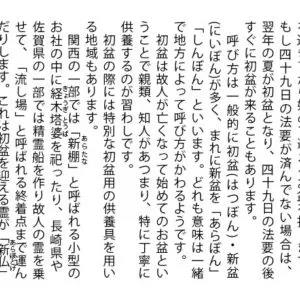 もし四十九日の法要が済んでない場合は、
翌年の夏が初盆となり、四十九日の法要の後
すぐに初盆が来ることもあります。
呼び方は一般的に初盆(はつぼん)・新盆
(にいぼん)が多く、まれに新盆を「あらぼん」
「しんぼん」といいます。どれも意味は一緒
で地方によって呼び方がかわるようです。
初盆は故人が亡くなって始めてのお盆とい
うことで親類、知人があつまり、特に丁寧に
供養するのが習わしです。
初盆の際には特別な初盆用の供養具を用い
る地域もあります。
関西の一部では「新棚」と呼ばれる小型の
お社の中に経木塔婆を祀ったり、長崎県や
佐賀県の一部では精霊船を作り故人の霊を乗
せて、「流し場」と呼ばれる終着点まで運ん
だります。これは初盆を迎える霊が「新仏」